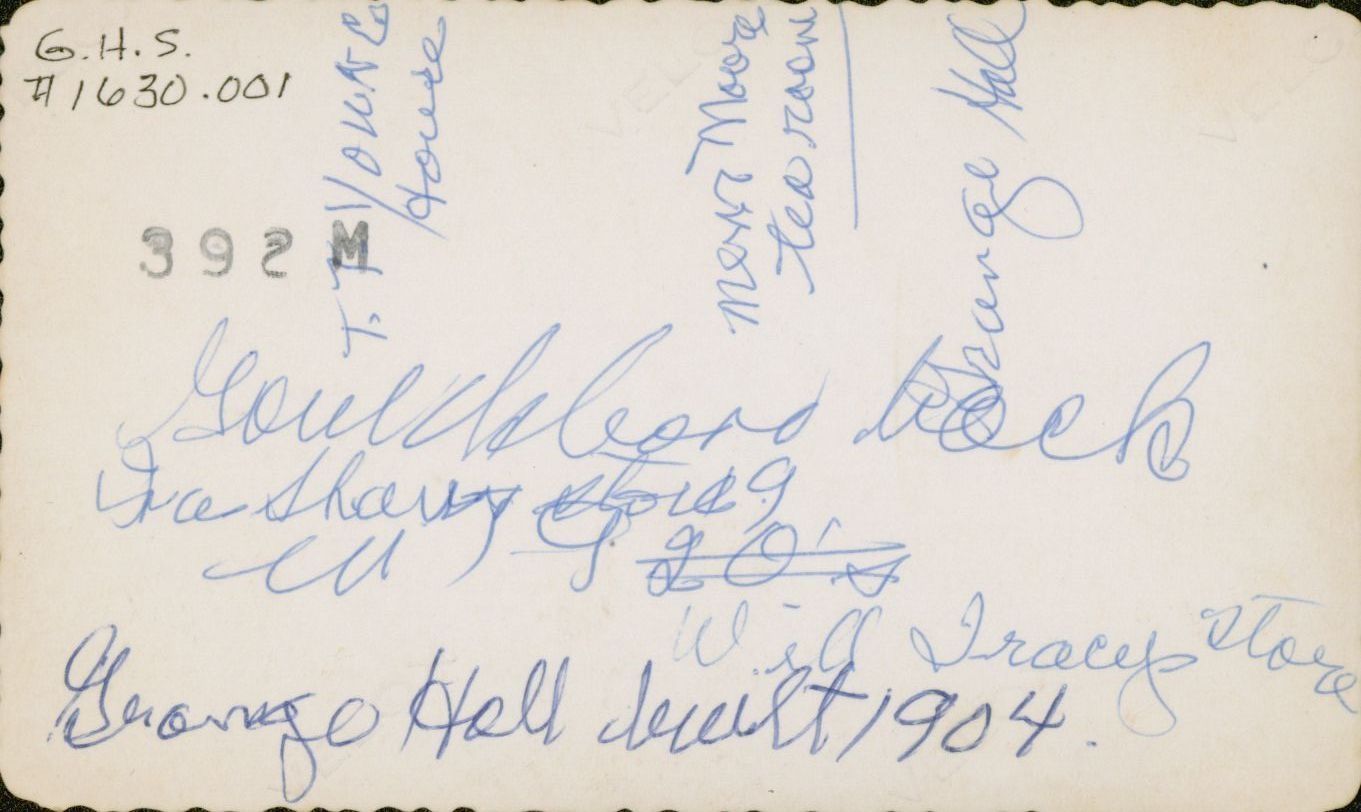 G.H.S.
#1630.001
T. T Young
House
Next Moore
tea room
Grange Hall
392 M
Gouldsboro Rock
Ira Shaw
20's
Will Tracy Store
Grange Hall built 1904.